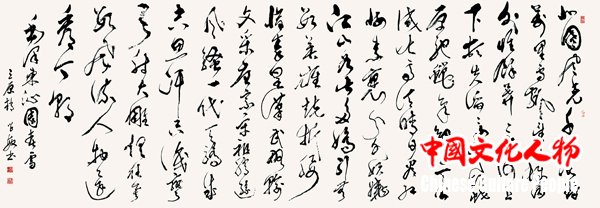 北国风光千里冰封
万里雪飘望长城内
外惟馀莽莽大河上
下顿失滔滔
原驰蜡象
试比高须晴日看红
妆素裹分外妖娆
江山如此多娇引无
数英雄竞折腰
惜秦皇汉武略输
文采唐宗宋祖稍逊
风骚一代天骄成
吉思汗只识弯
弓射大雕俱往矣
数风流人物还
看今朝
毛泽东沁园春雪
中国文化人物